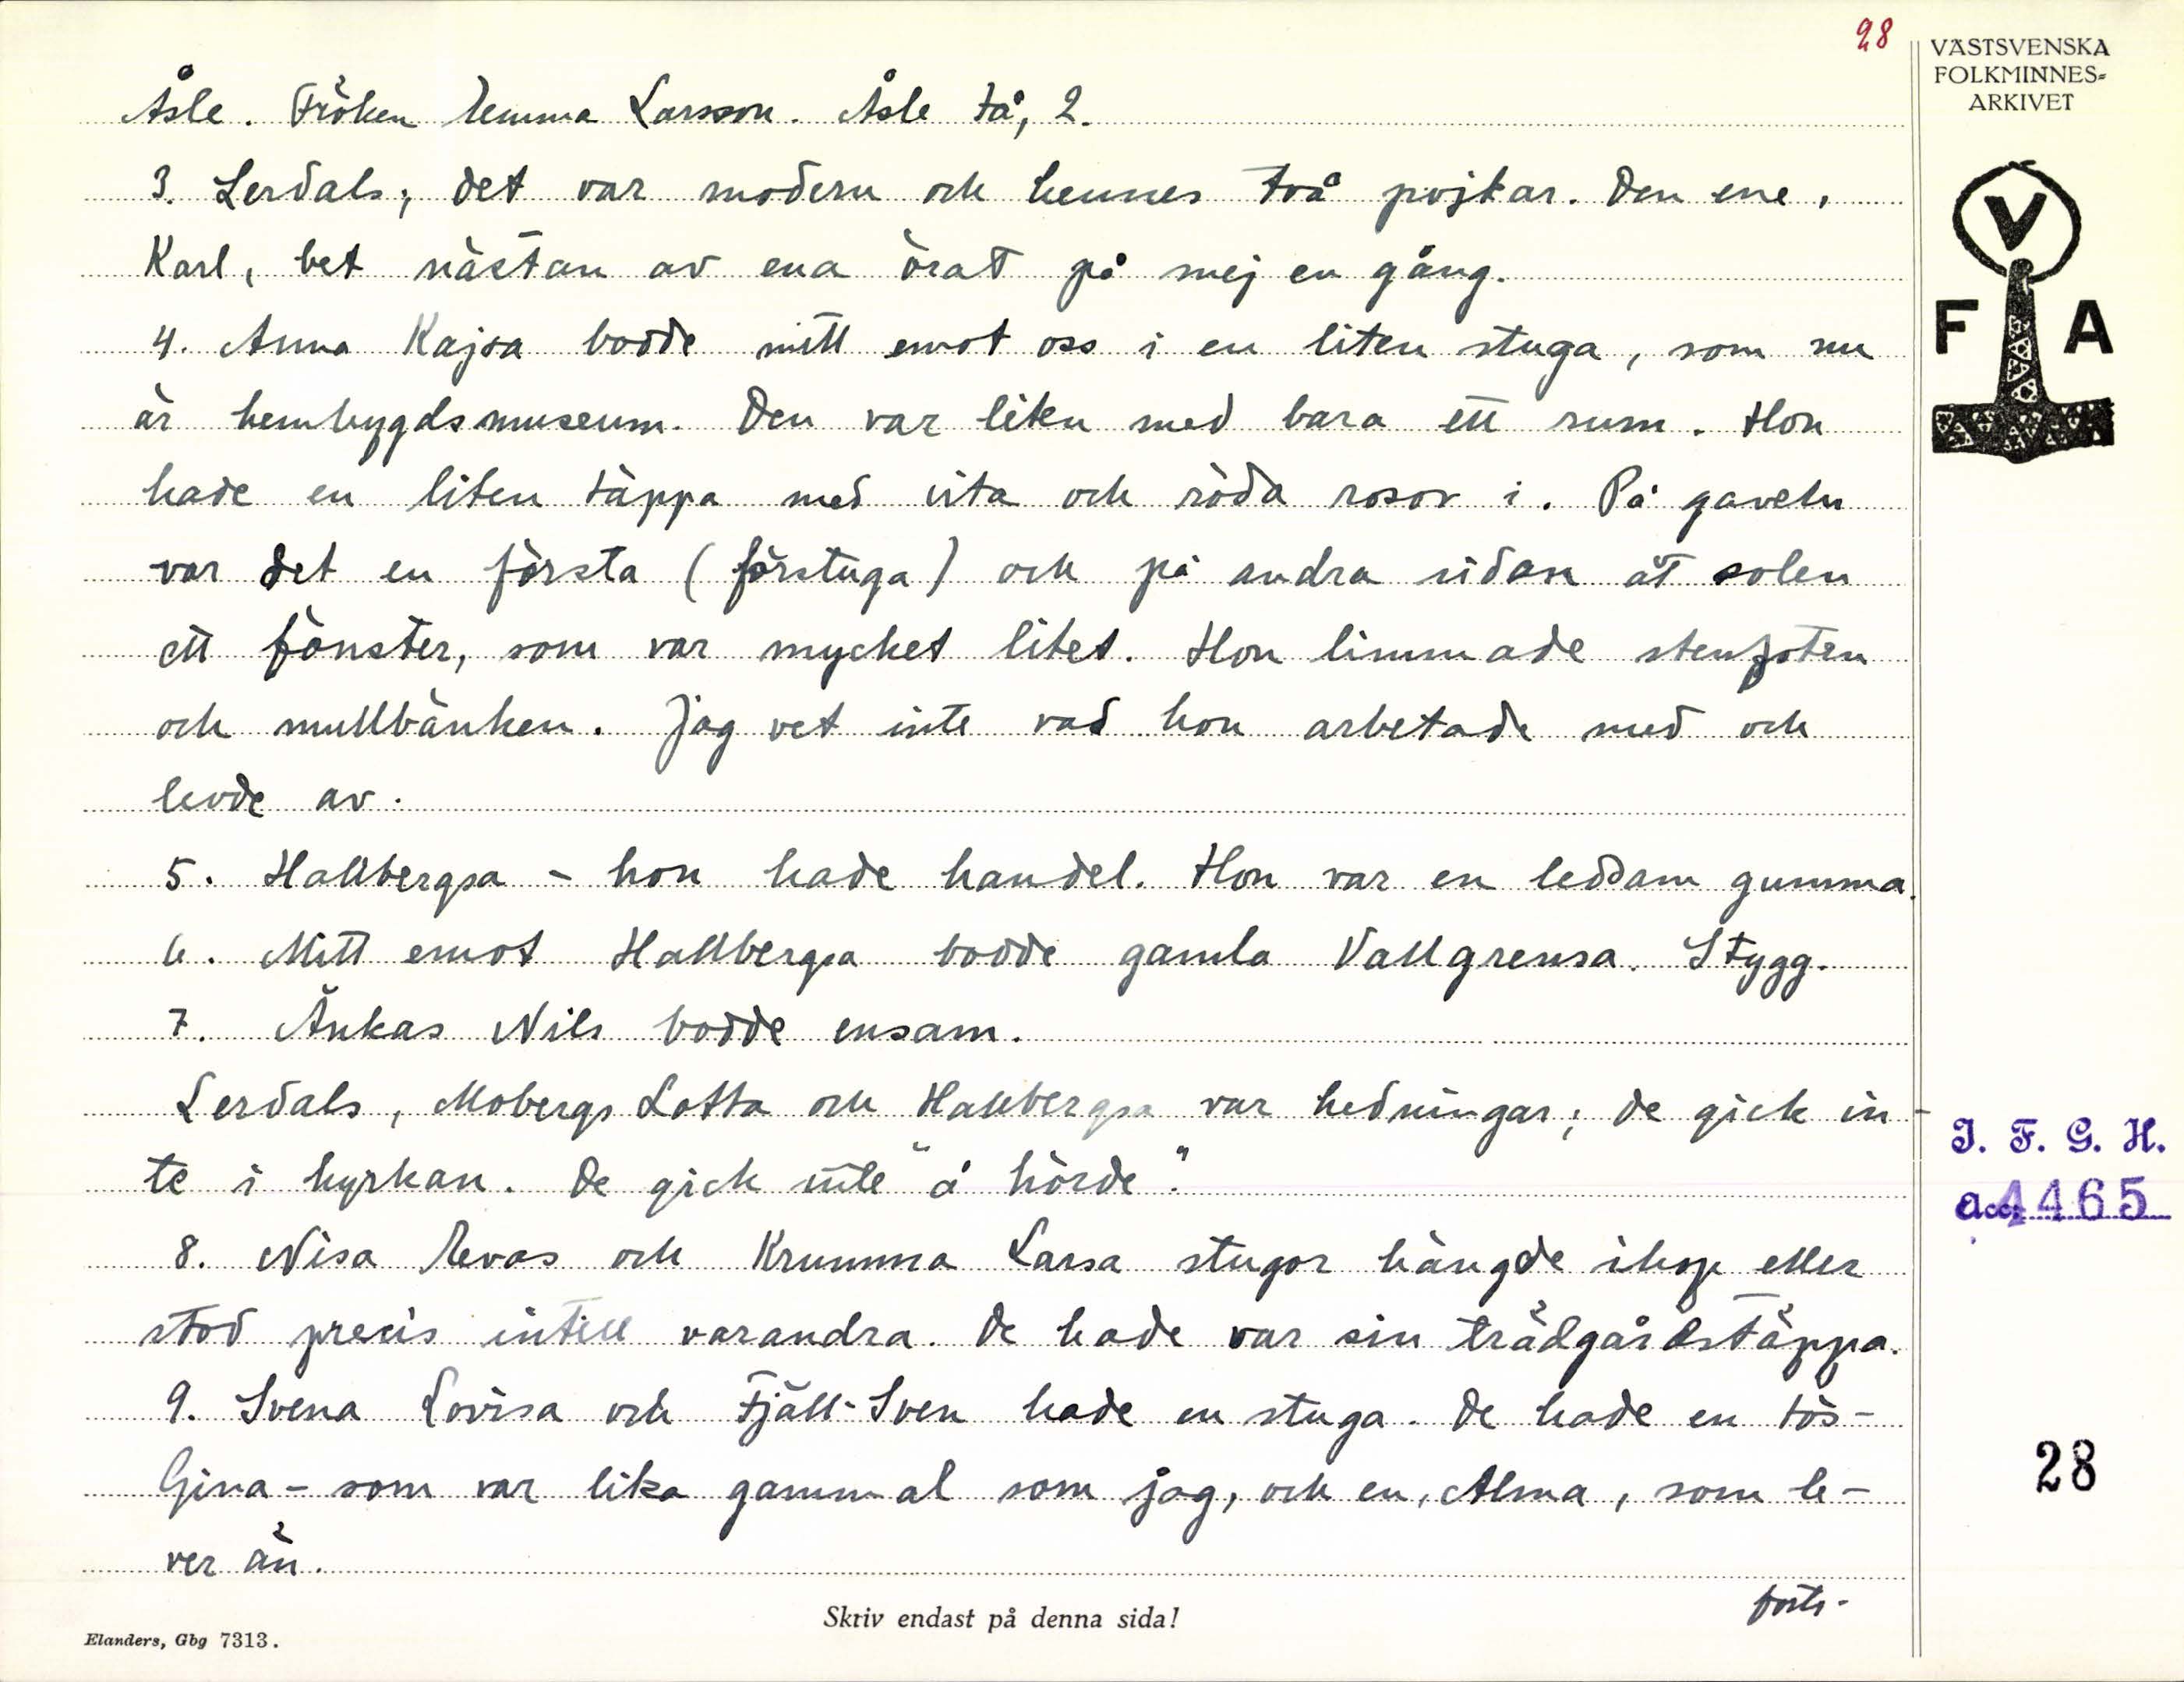 28
VÄSTSVENSKA
FOLKMINNES-
ARKIVET
V
F A
Åsle. Fröken Emma Larsson. Åsle tå, 2.
3. Lerdals; det var modern och hennes två pojkar. Den ene,
Karl, bet nästan av ena örat på mej en gång.
4. Anna Kajsa bodde mitt emot oss i en liten stuga, som nu
är hembygdsmuseum. Den var liten med bara ett rum. Hon
hade en liten täppa med vita och röda rosor i. På gaveln
var det en första (förstuga) och på andra sidan åt solen
ett fönster, som var mycket litet. Hon limmade stenfoten
och mullbänken. Jag vet inte vad hon arbetade med och
levde av.
5. Hallbergsa - hon hade handel. Hon var en leddam gumma.
6. Mitt emot Hallbergsa bodde gamla Vallgrensa. Stygg.
7. Änkas Nils bodde ensam.
Lerdals, Mobergs Lotta och Hallbergsa var hedningar; de gick in-
te i kyrkan. De gick inte "å hörde".
8. Nisa Evas och Krumma Larsa stugor hängde ihop eller
stod precis intill varandra. De hade var sin trädgårdstäppa.
9. Svena Lovisa och Fjäll-Sven hade en stuga. De hade en tös-
Gina - som var lika gammal som jag, och en, Alma, som le-
ver än.
forts.
I. F. G. H.
acc. 4465
28
Skriv endast på denna sida!
Elanders, Gbg 7313.